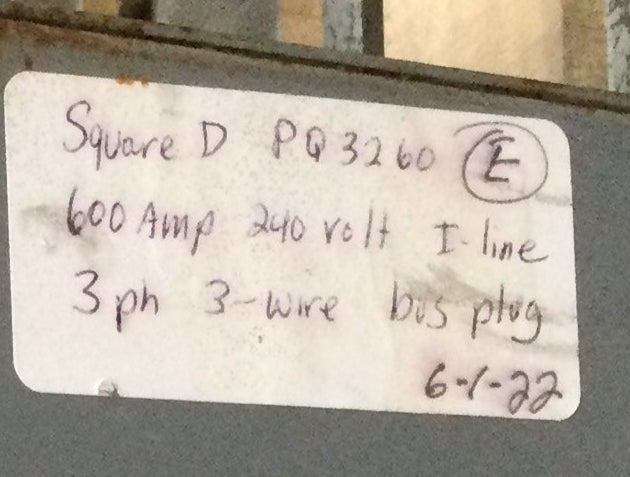 Square D PQ3260 E
600 Amp 240 volt I-line
3ph 3-wire bus plug
6-1-22